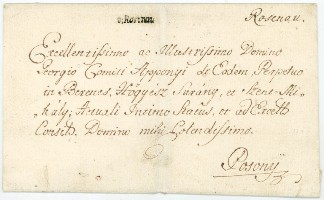 v. Rosenau
Rosenau.
Excellentissimo ac Illustrissimo Domino
Georgio Comiti Apponyi de Eadem Perpetuo
in Berencs, Hőgyész Surány, et Szent Mi-
kály, Actuali Intimo Status, et ad Excels.
Consil. Domino mihi Colendissimo.
Posony